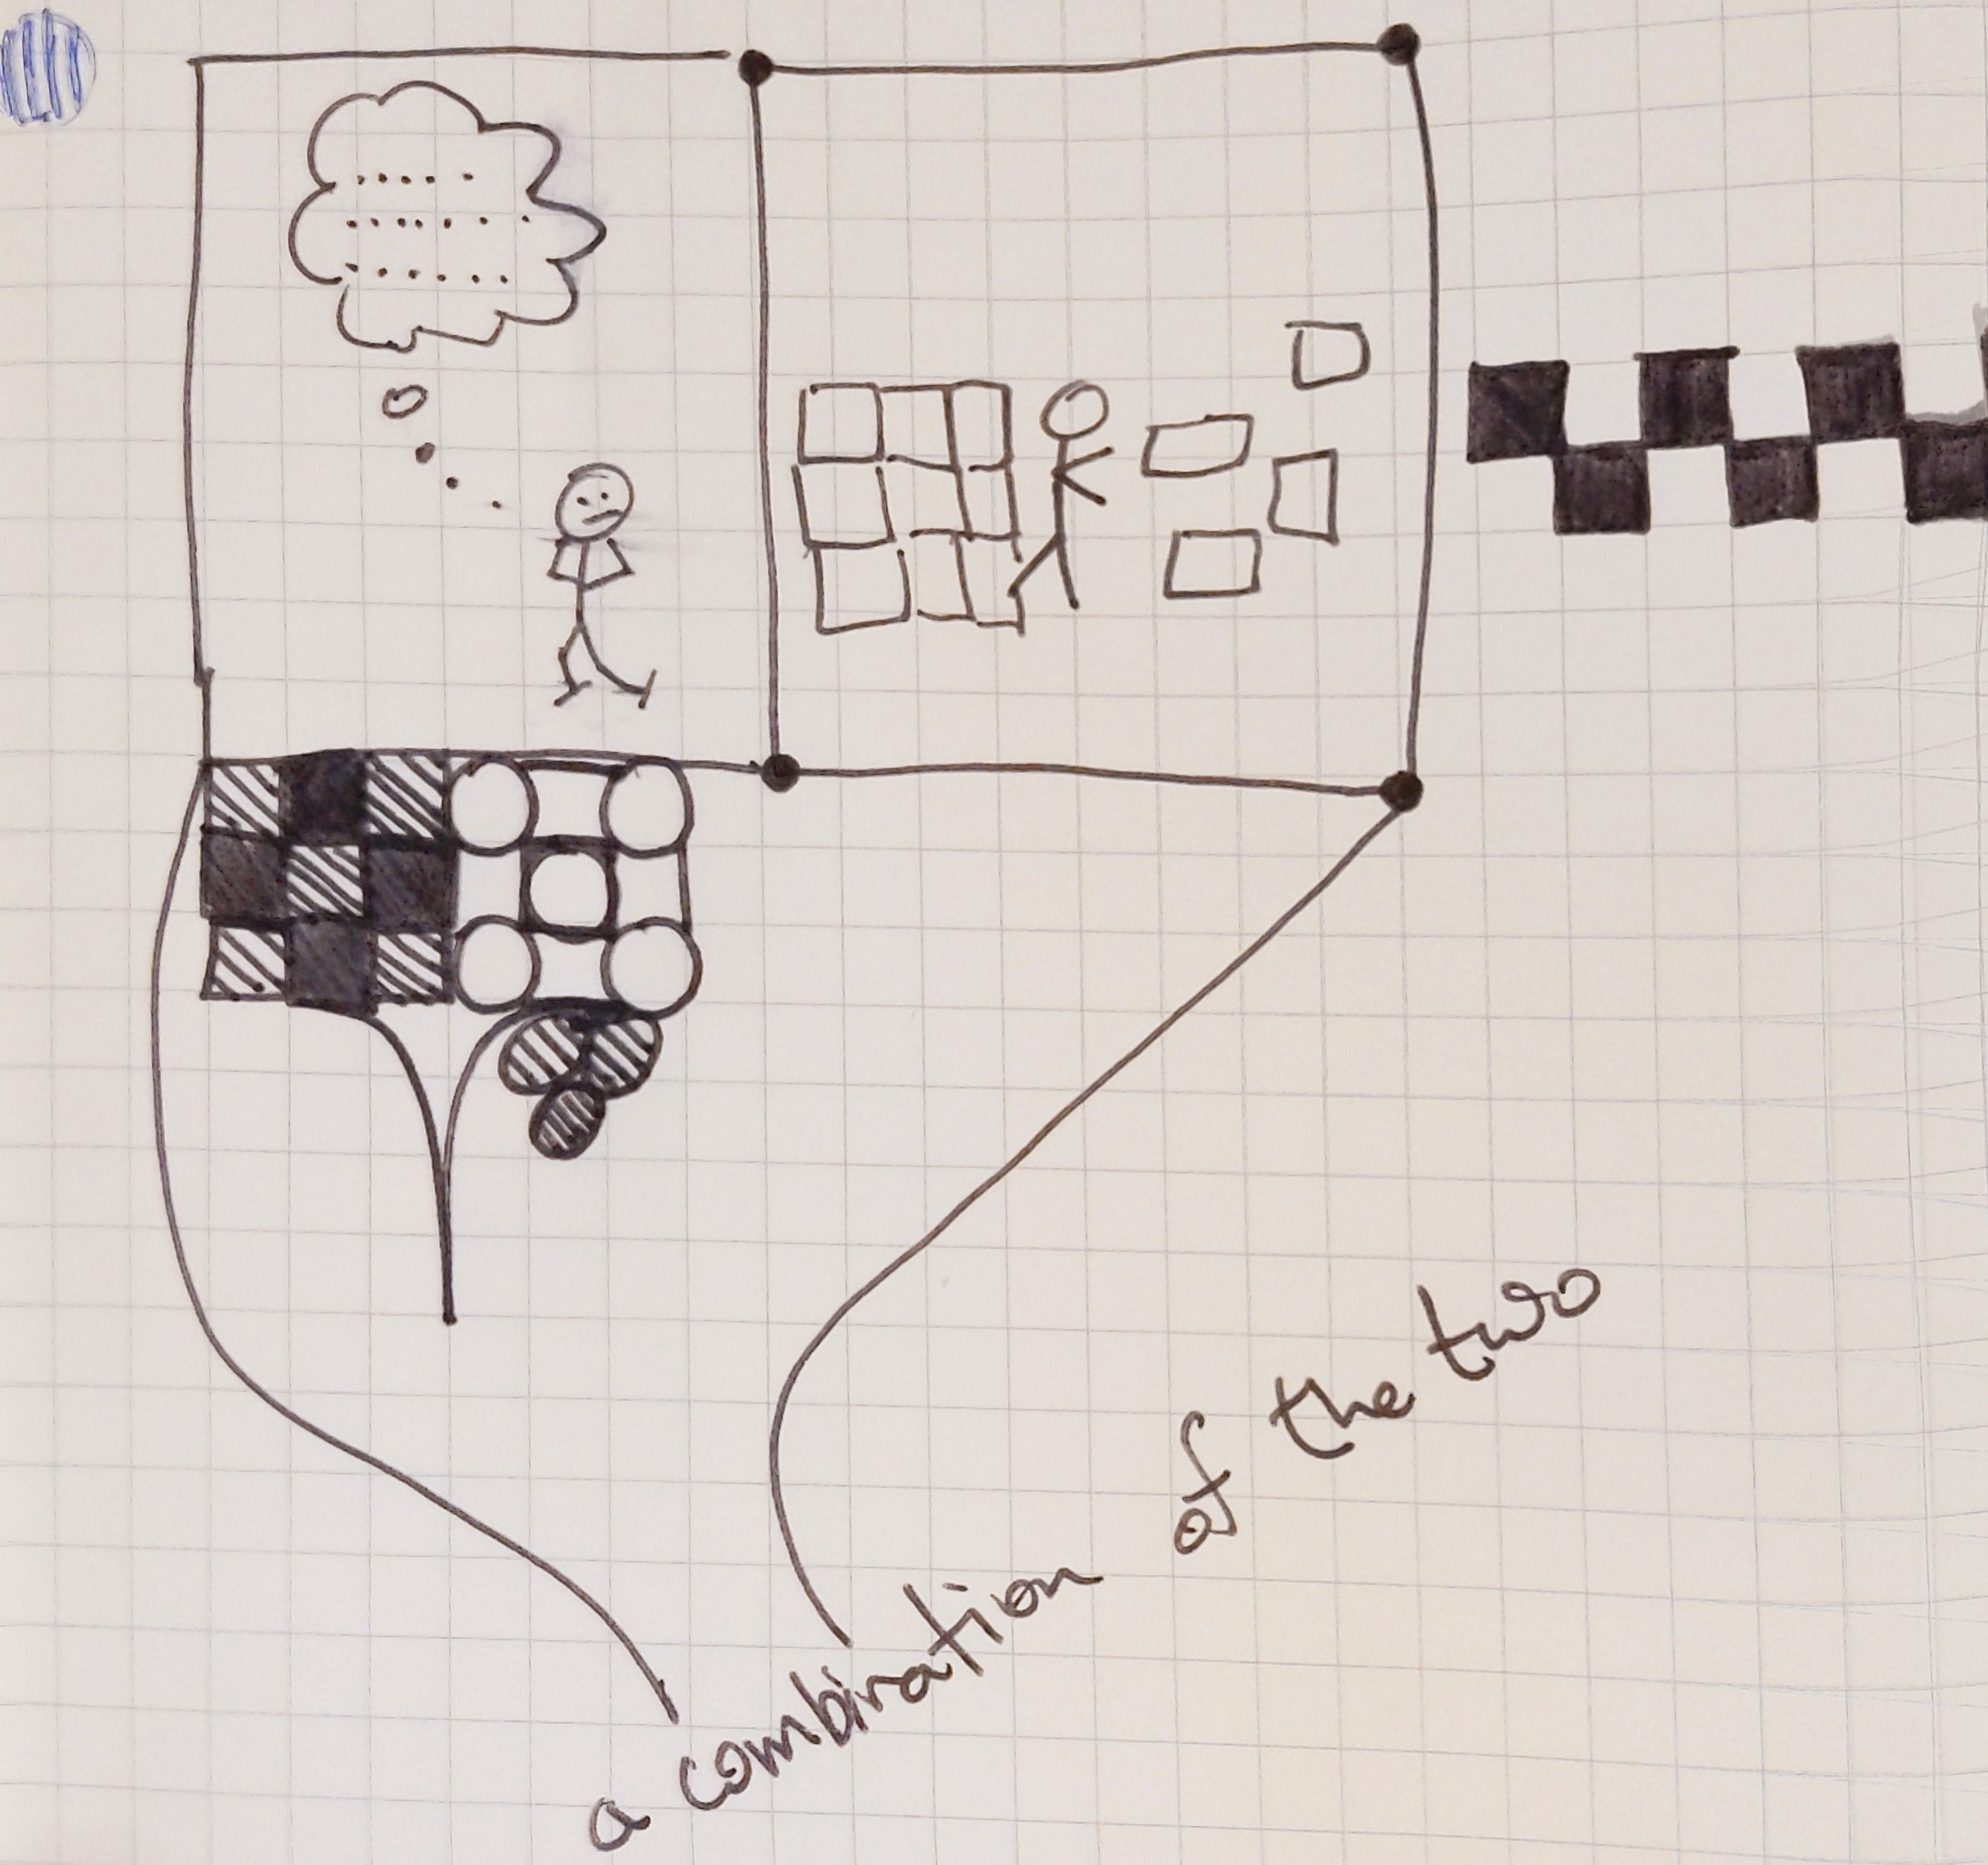 a combination of the two